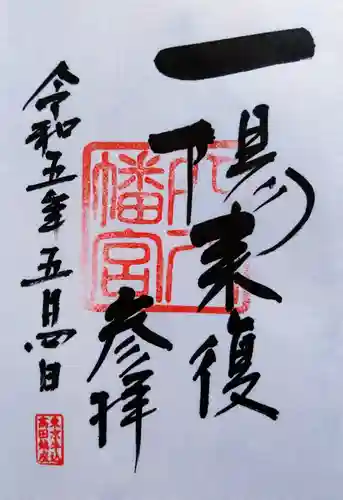 一陽来復
参拝
令和五年五月四日
八幡宮